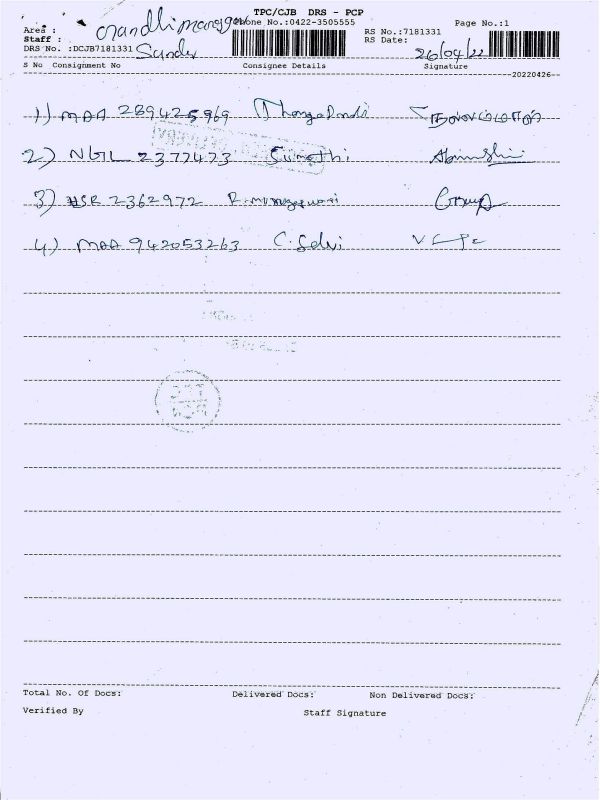 TPC/CJB DRS - PCP
Area :
Phone No.:0422-3505555
Page No.:1
Staff :
RS No.:7181331
DRS No. :DCJB7181331 Sundar
RS Date: 26/04/22
S No Consignment No Consignee Details Signature
20220426
1) MAA 289425969
2) NGL 2377473 Sumathi
3) HSR 2362972
4) MAA 942053263 C. Selvi
Total No. Of Docs: Delivered Docs: Non Delivered Docs:
Verified By Staff Signature